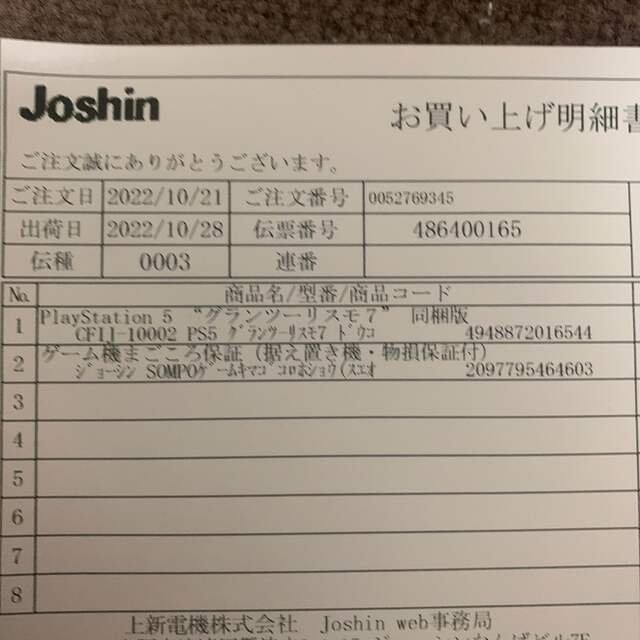 Joshin
お買い上げ明細書
ご注文誠にありがとうございます。
ご注文日 2022/10/21 ご注文番号 0052769345
出荷日 2022/10/28 伝票番号 486400165
伝種 0003 連番
No. 商品名/型番/商品コード
1 PlayStation 5 “グランツーリスモ7” 同梱版
CFIJ-10002 PS5 グランツーリスモ7 ドウコ 4948872016544
2 ゲーム機まごころ保証（据え置き機・物損保証付）
ジョーシン SOMPOゲームキマゴコロホショウ(スエオ 2097795464603
3
4
5
6
7
8
上新電機株式会社 Joshin web事務局